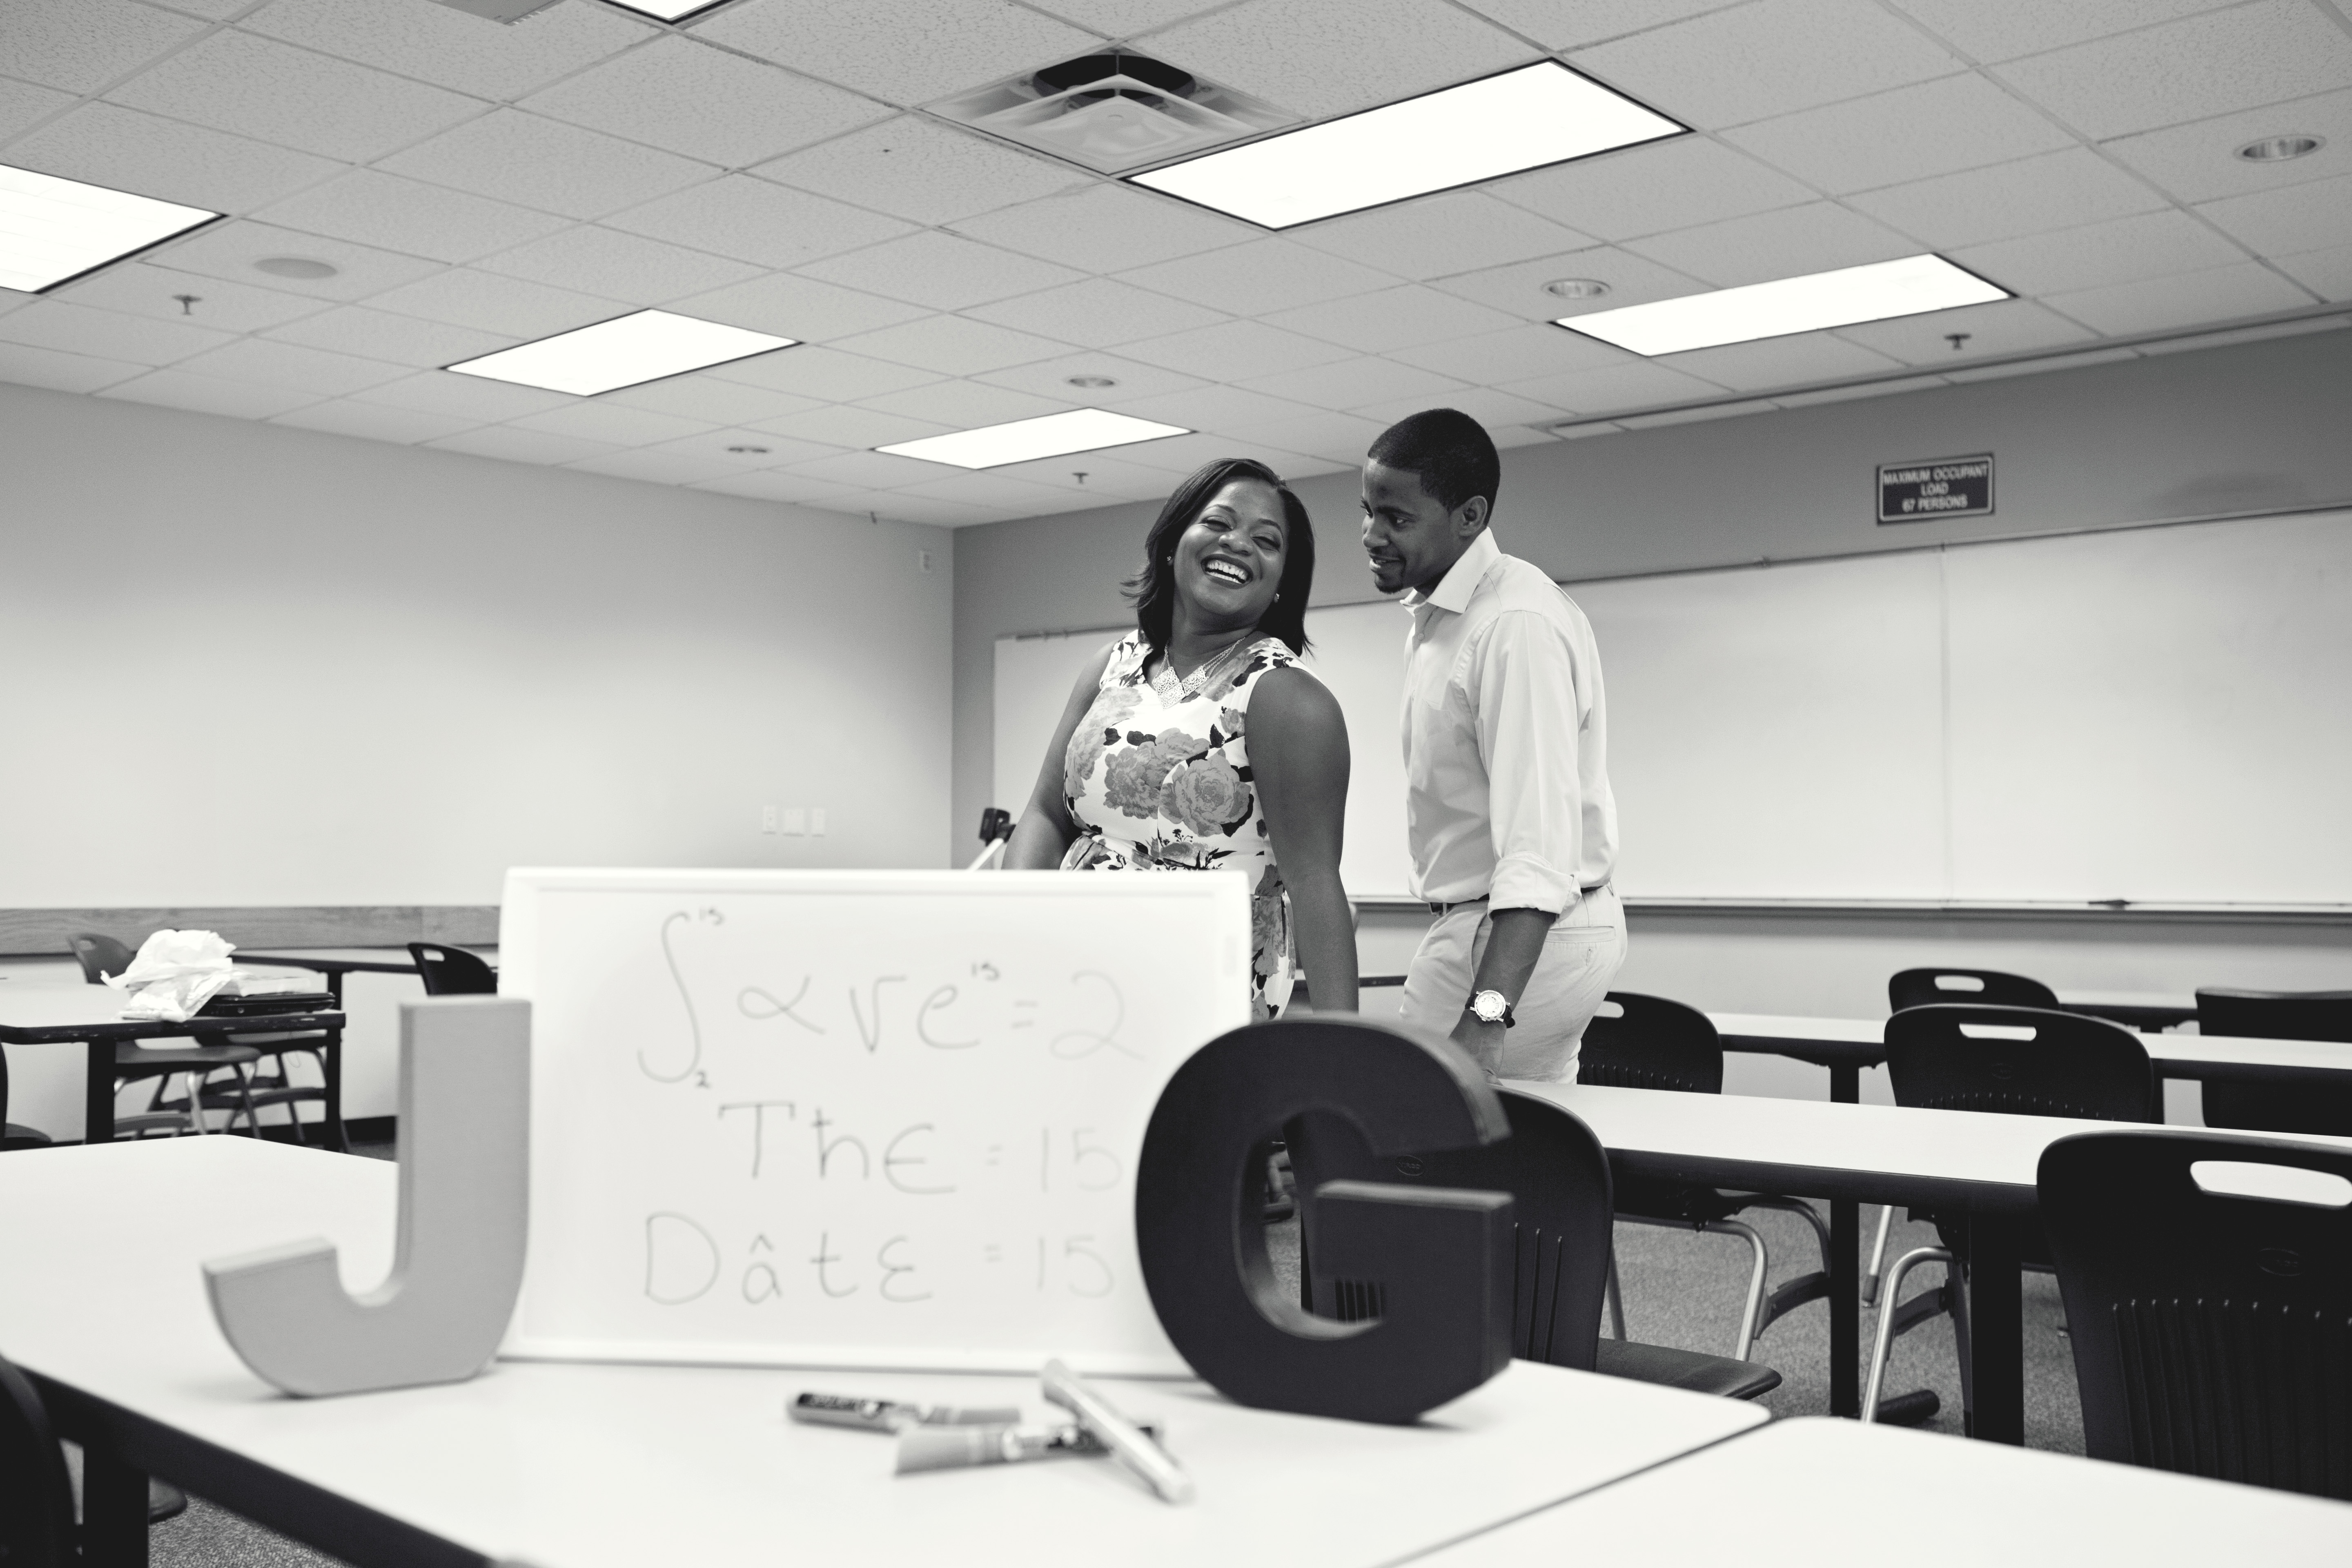 MAXIMUM OCCUPANT
LOAD
67 PERSONS
∫₂¹⁵ αve¹⁵ = 2
Thε = 15
Dâtε = 15
J
G